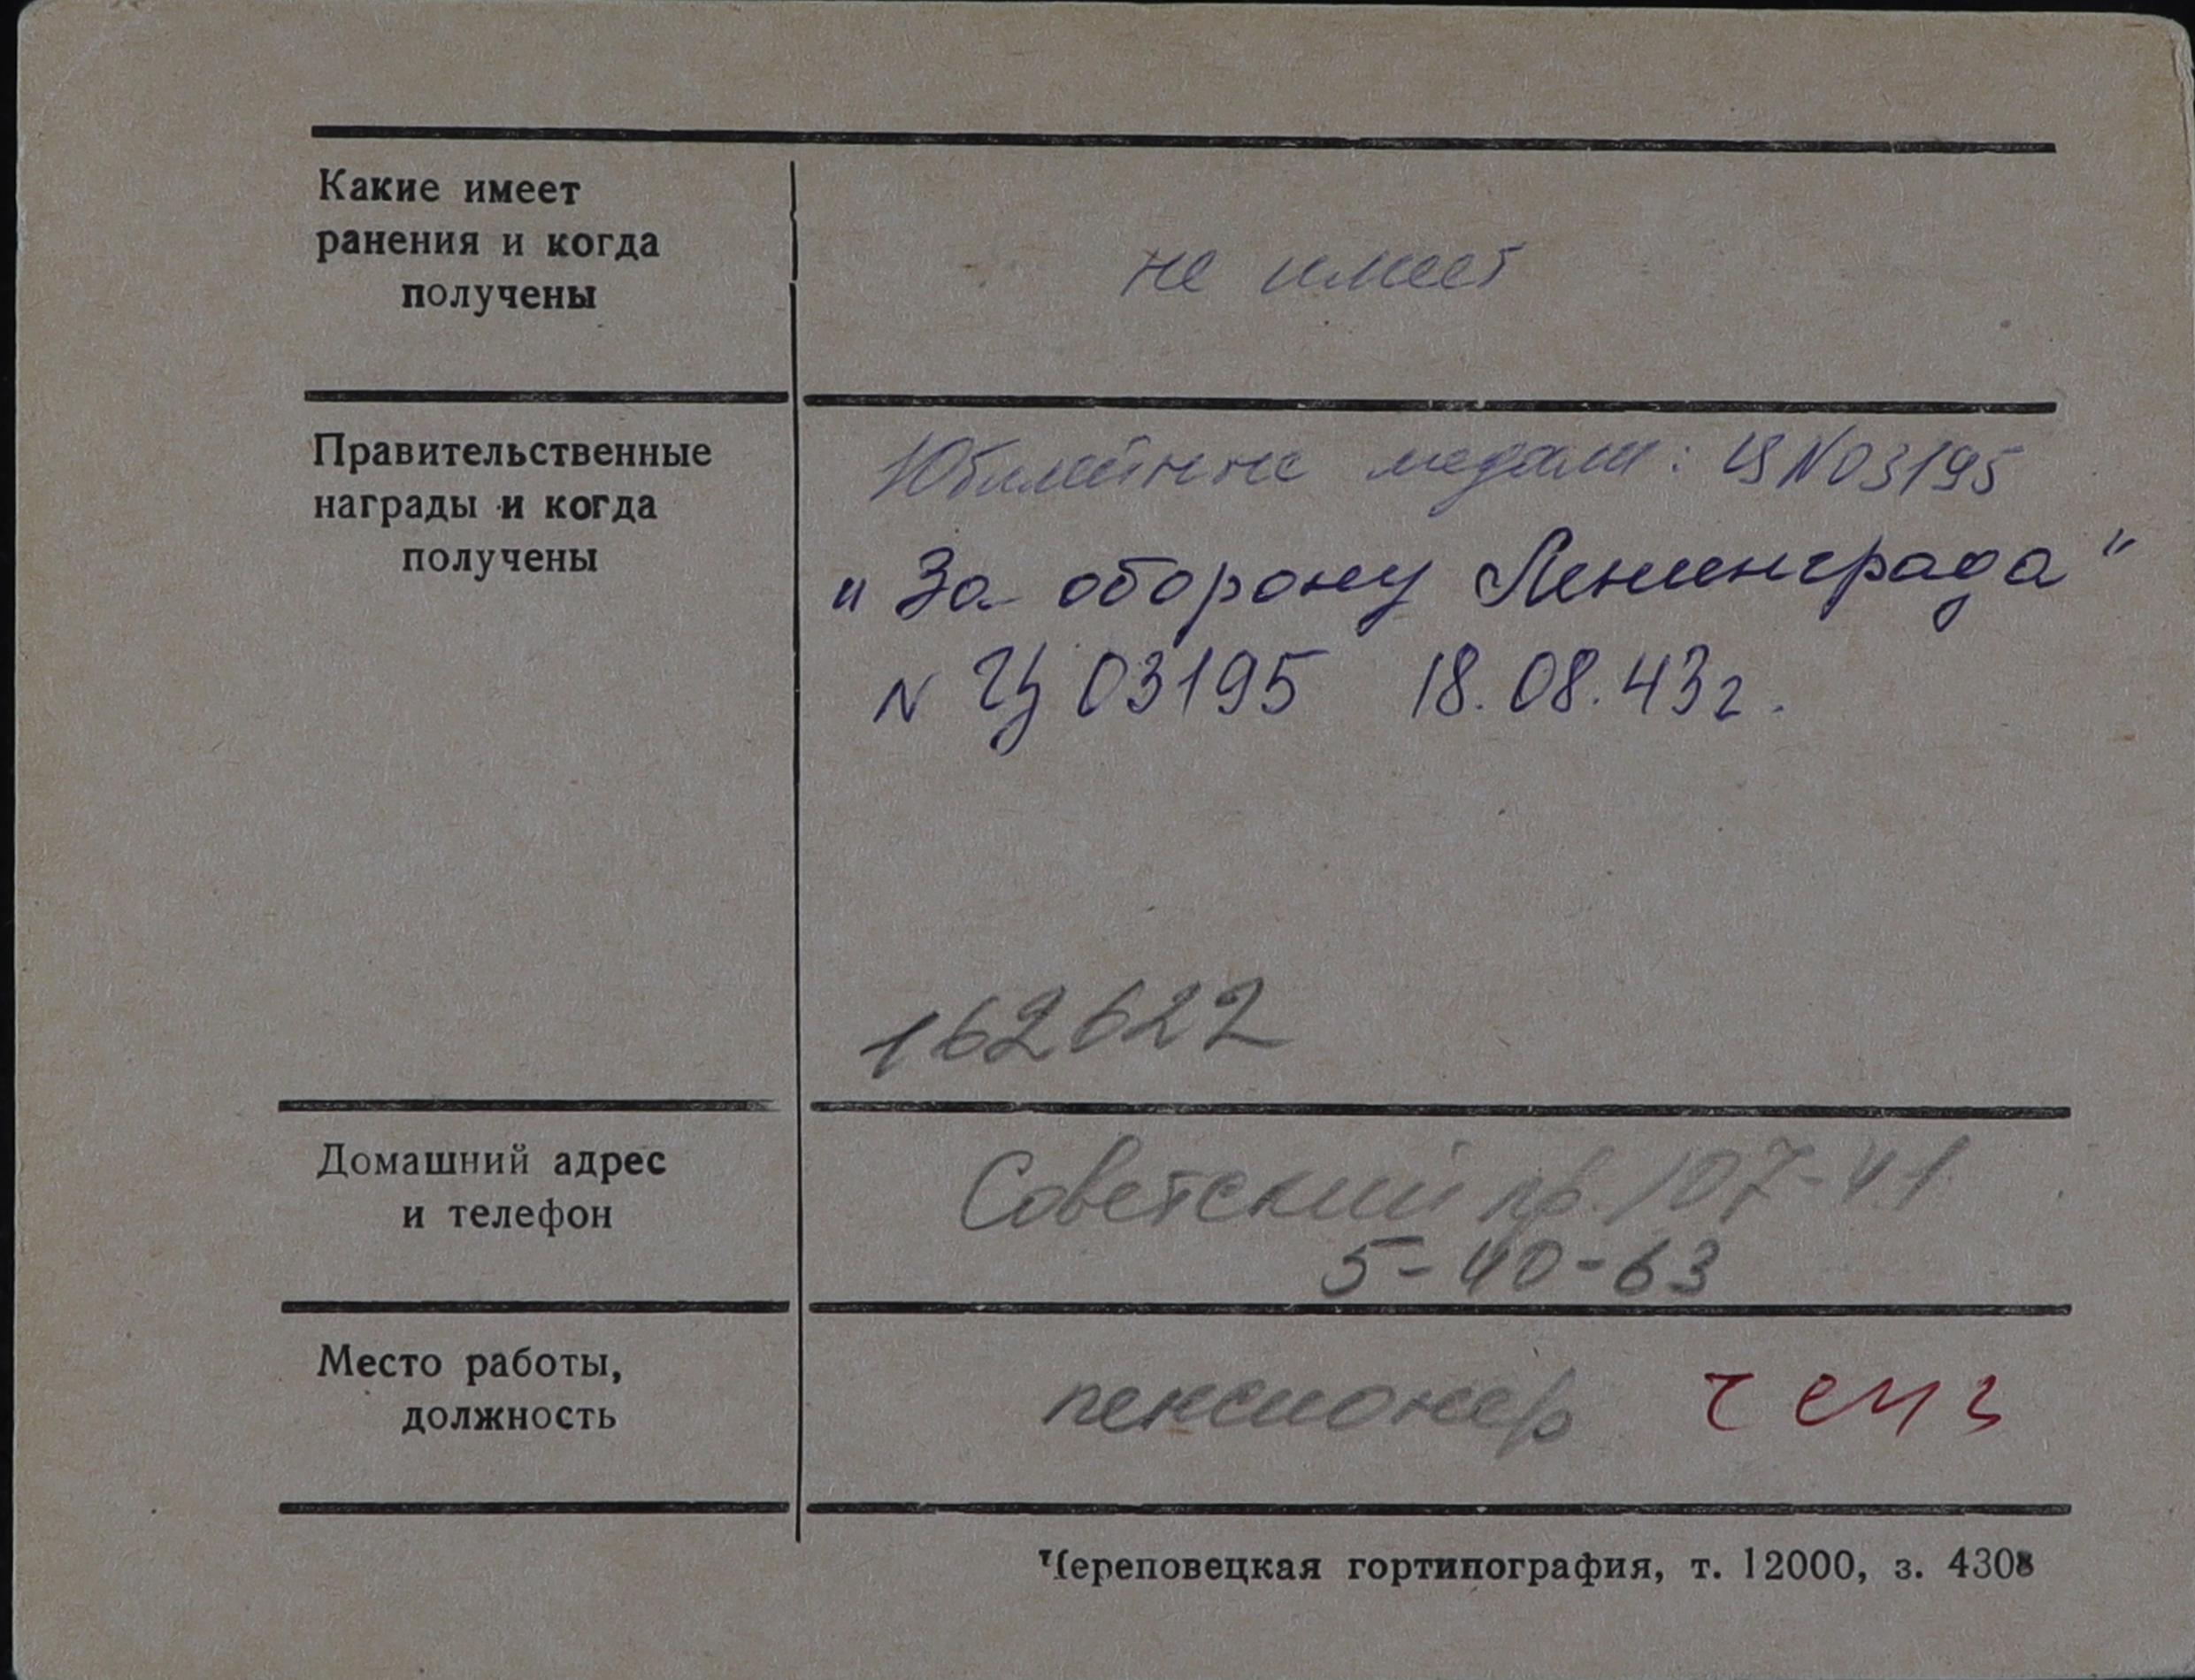 Какие имеет
ранения и когда
получены
не имеет
Правительственные
награды и когда
получены
Юбилейные медали: ЦN03195
"За оборону Ленинграда"
N Ц 03195 18.08.43г.
162622
Домашний адрес
и телефон
Советский пр. 107-41
5-40-63
Место работы,
должность
пенсионер
Череповецкая гортипография, т. 12000, з. 4308